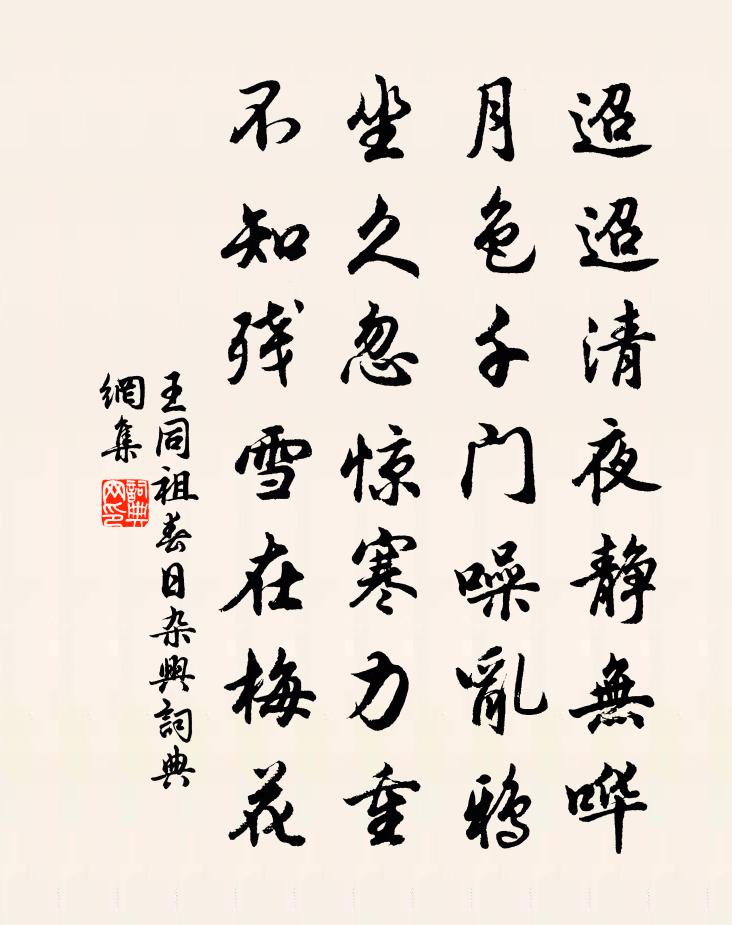 迢迢清夜静無哗
月色千门噪亂鸦
坐久忽惊寒力重
不知残雪在梅花
王同祖春日杂興詞典
網集
詞典
网印